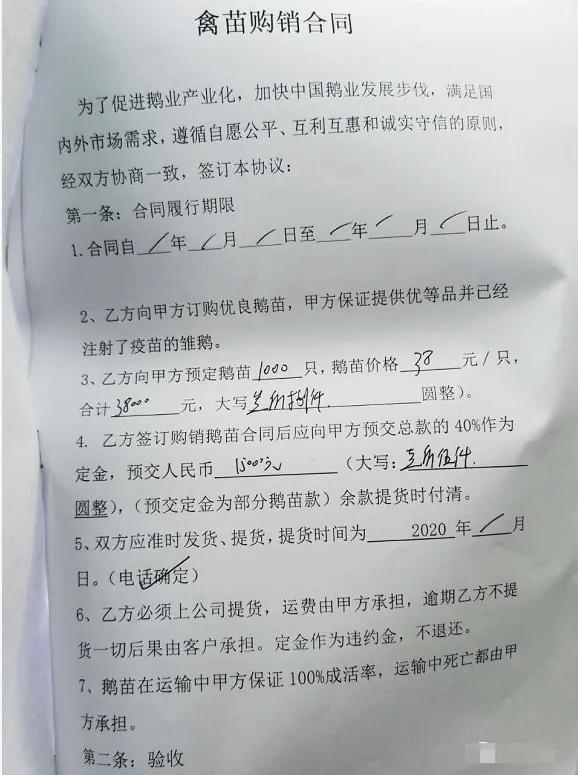 禽苗购销合同
为了促进鹅业产业化，加快中国鹅业发展步伐，满足国
内外市场需求，遵循自愿公平、互利互惠和诚实守信的原则，
经双方协商一致，签订本协议：
第一条：合同履行期限
1.合同自 / 年 / 月 / 日至 / 年 / 月 / 日止。
2、乙方向甲方订购优良鹅苗，甲方保证提供优等品并已经
注射了疫苗的雏鹅。
3、乙方向甲方预定鹅苗 1000 只，鹅苗价格 38 元/只，
合计 38000 元，大写 圆整）。
4. 乙方签订购销鹅苗合同后应向甲方预交总款的 40%作为
定金，预交人民币 （大写：
圆整），（预交定金为部分鹅苗款）余款提货时付清。
5、双方应准时发货、提货，提货时间为 2020 年 / 月
日。（电话确定）
6、乙方必须上公司提货，运费由甲方承担，逾期乙方不提
货一切后果由客户承担。定金作为违约金，不退还。
7、鹅苗在运输中甲方保证 100%成活率，运输中死亡都由甲
方承担。
第二条：验收